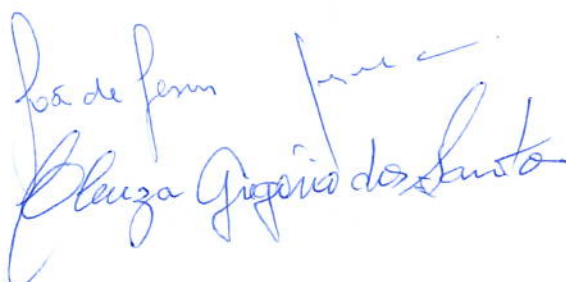 João de Jesus
Cleuza Gregório dos Santos